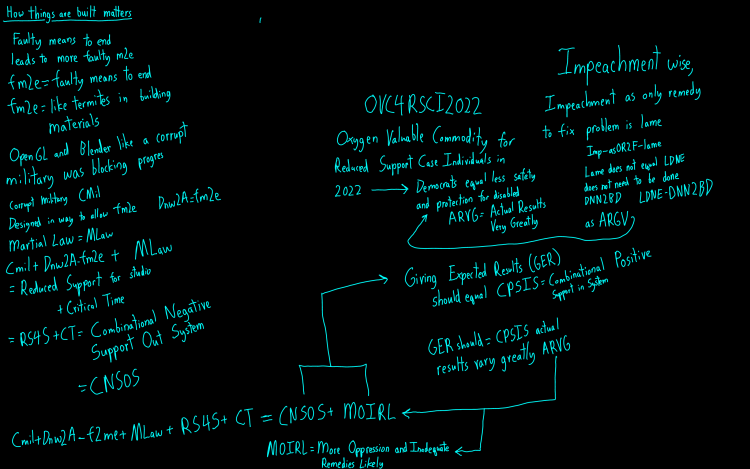 How things are built matters
Faulty means to end
leads to more faulty m2e
fm2e = faulty means to end
fm2e = like termites in building
materials
OpenGL and Blender like a corrupt
military was blocking progres
Corrupt military CMil
Designed in way to allow fm2e Dnw2A=fm2e
Martial Law = MLaw
Cmil + Dnw2A-fm2e + MLaw
= Reduced Support for studio
+ Critical Time
= RS4S + CT = Combinational Negative
Support Out System
= CNSOS
Cmil+Dnw2A-f2me+MLaw + RS4S + CT = CNSOS + MOIRL
MOIRL = More Oppression and Inadequate
Remedies Likely
OVC4RSCI2022
Oxygen Valuable Commodity for
Reduced Support Case Individuals in
2022 → Democrats equal less safety
and protection for disabled
ARVG = Actual Results
Very Greatly
Impeachment wise,
Impeachment as only remedy
to fix problem is lame
Imp-asOR2F-lame
Lame does not equal LDNE
does not need to be done
DNN2BD LDNE-DNN2BD
as ARGV
Giving Expected Results (GER)
should equal CPSIS = Combinational Positive
Support in System
GER should = CPSIS actual
results vary greatly ARVG